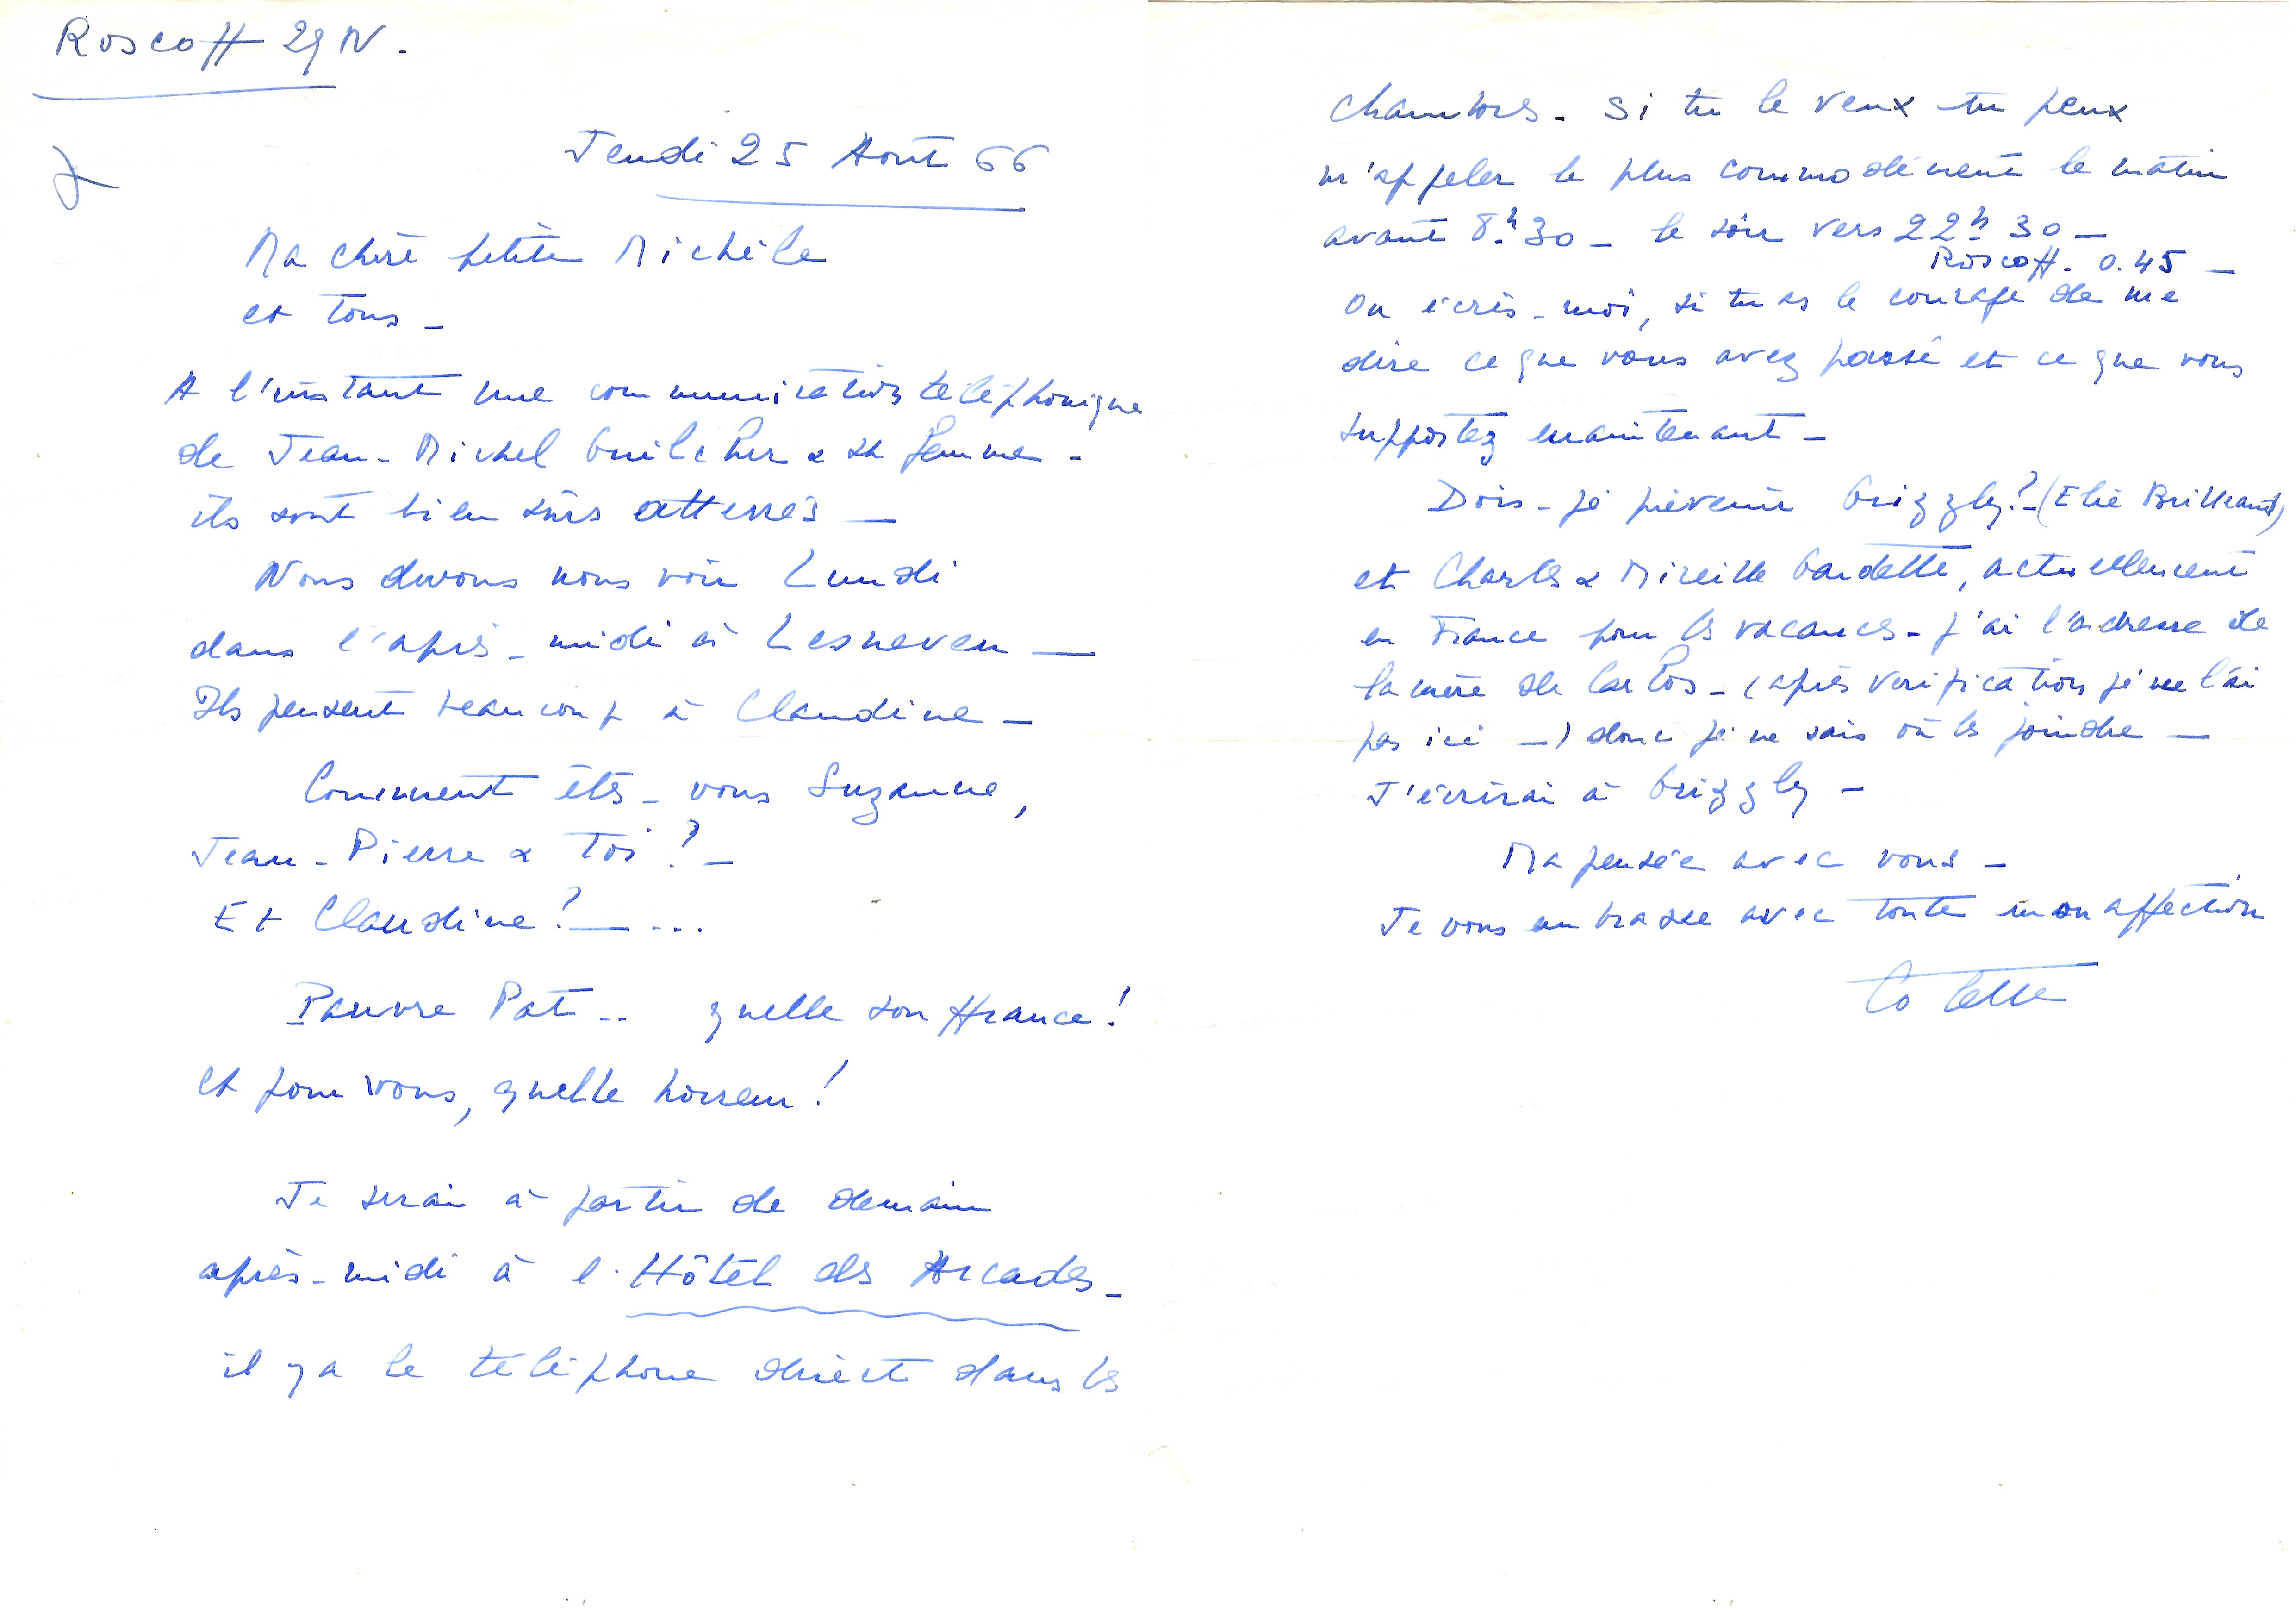 Roscoff 29 N.
Jeudi 25 Août 66
Ma chère petite Michèle
et tous –
A l'instant une communication téléphonique
de Jean-Michel Guilcher & sa femme –
ils sont bien sûrs atterrés –
Nous devons nous voir Lundi
dans l'après-midi à Lesneven –
Ils pensent beaucoup à Claudine –
Comment êtes-vous Suzanne,
Jean-Pierre & Toi ? –
Et Claudine ? – ...
Pauvre Pat .. quelle souffrance !
et pour vous, quelle horreur !
Je serai à partir de demain
après-midi à l'Hôtel des Arcades –
il y a le téléphone direct dans les
chambres – si tu le veux tu peux
m'appeler le plus commodément le matin
avant 8h30 – le soir vers 22h30 –
Roscoff. 0.45 –
Ou écris-moi, si tu as le courage de me
dire ce que vous avez passé et ce que vous
supportez maintenant –
Dois-je prévenir Grizzly ? – (Elie Brilleaud)
et Charles & Mireille Gardette, actuellement
en France pour les vacances – j'ai l'adresse de
la mère de Carlos – (après vérification je ne l'ai
pas ici –) donc je ne sais où les joindre –
J'écrirai à Grizzly –
Ma pensée avec vous –
Je vous embrasse avec toute mon affection
Colette